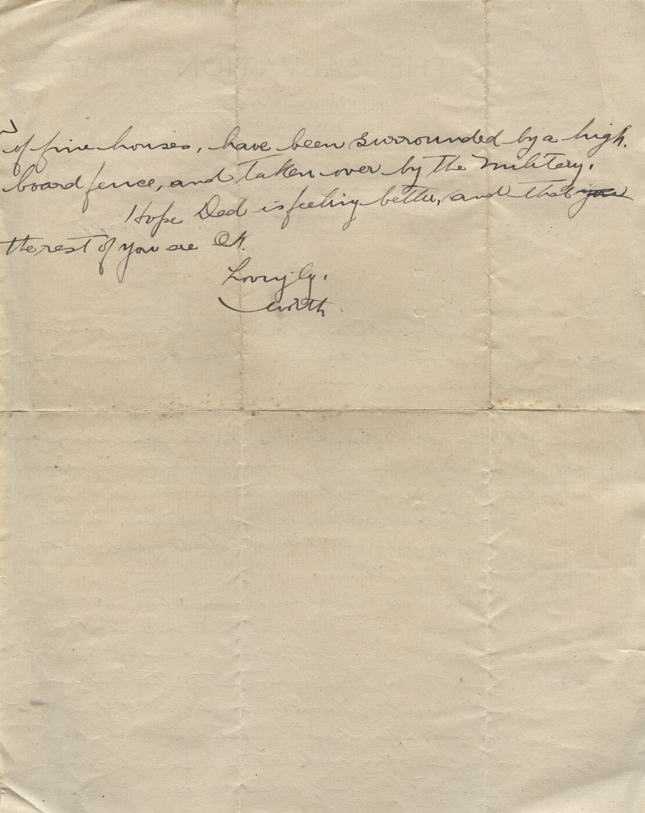 of fine houses, have been surrounded by a high
board fence, and taken over by the military.
Hope Dad is feeling better, and that
the rest of you are OK.
Lovingly.